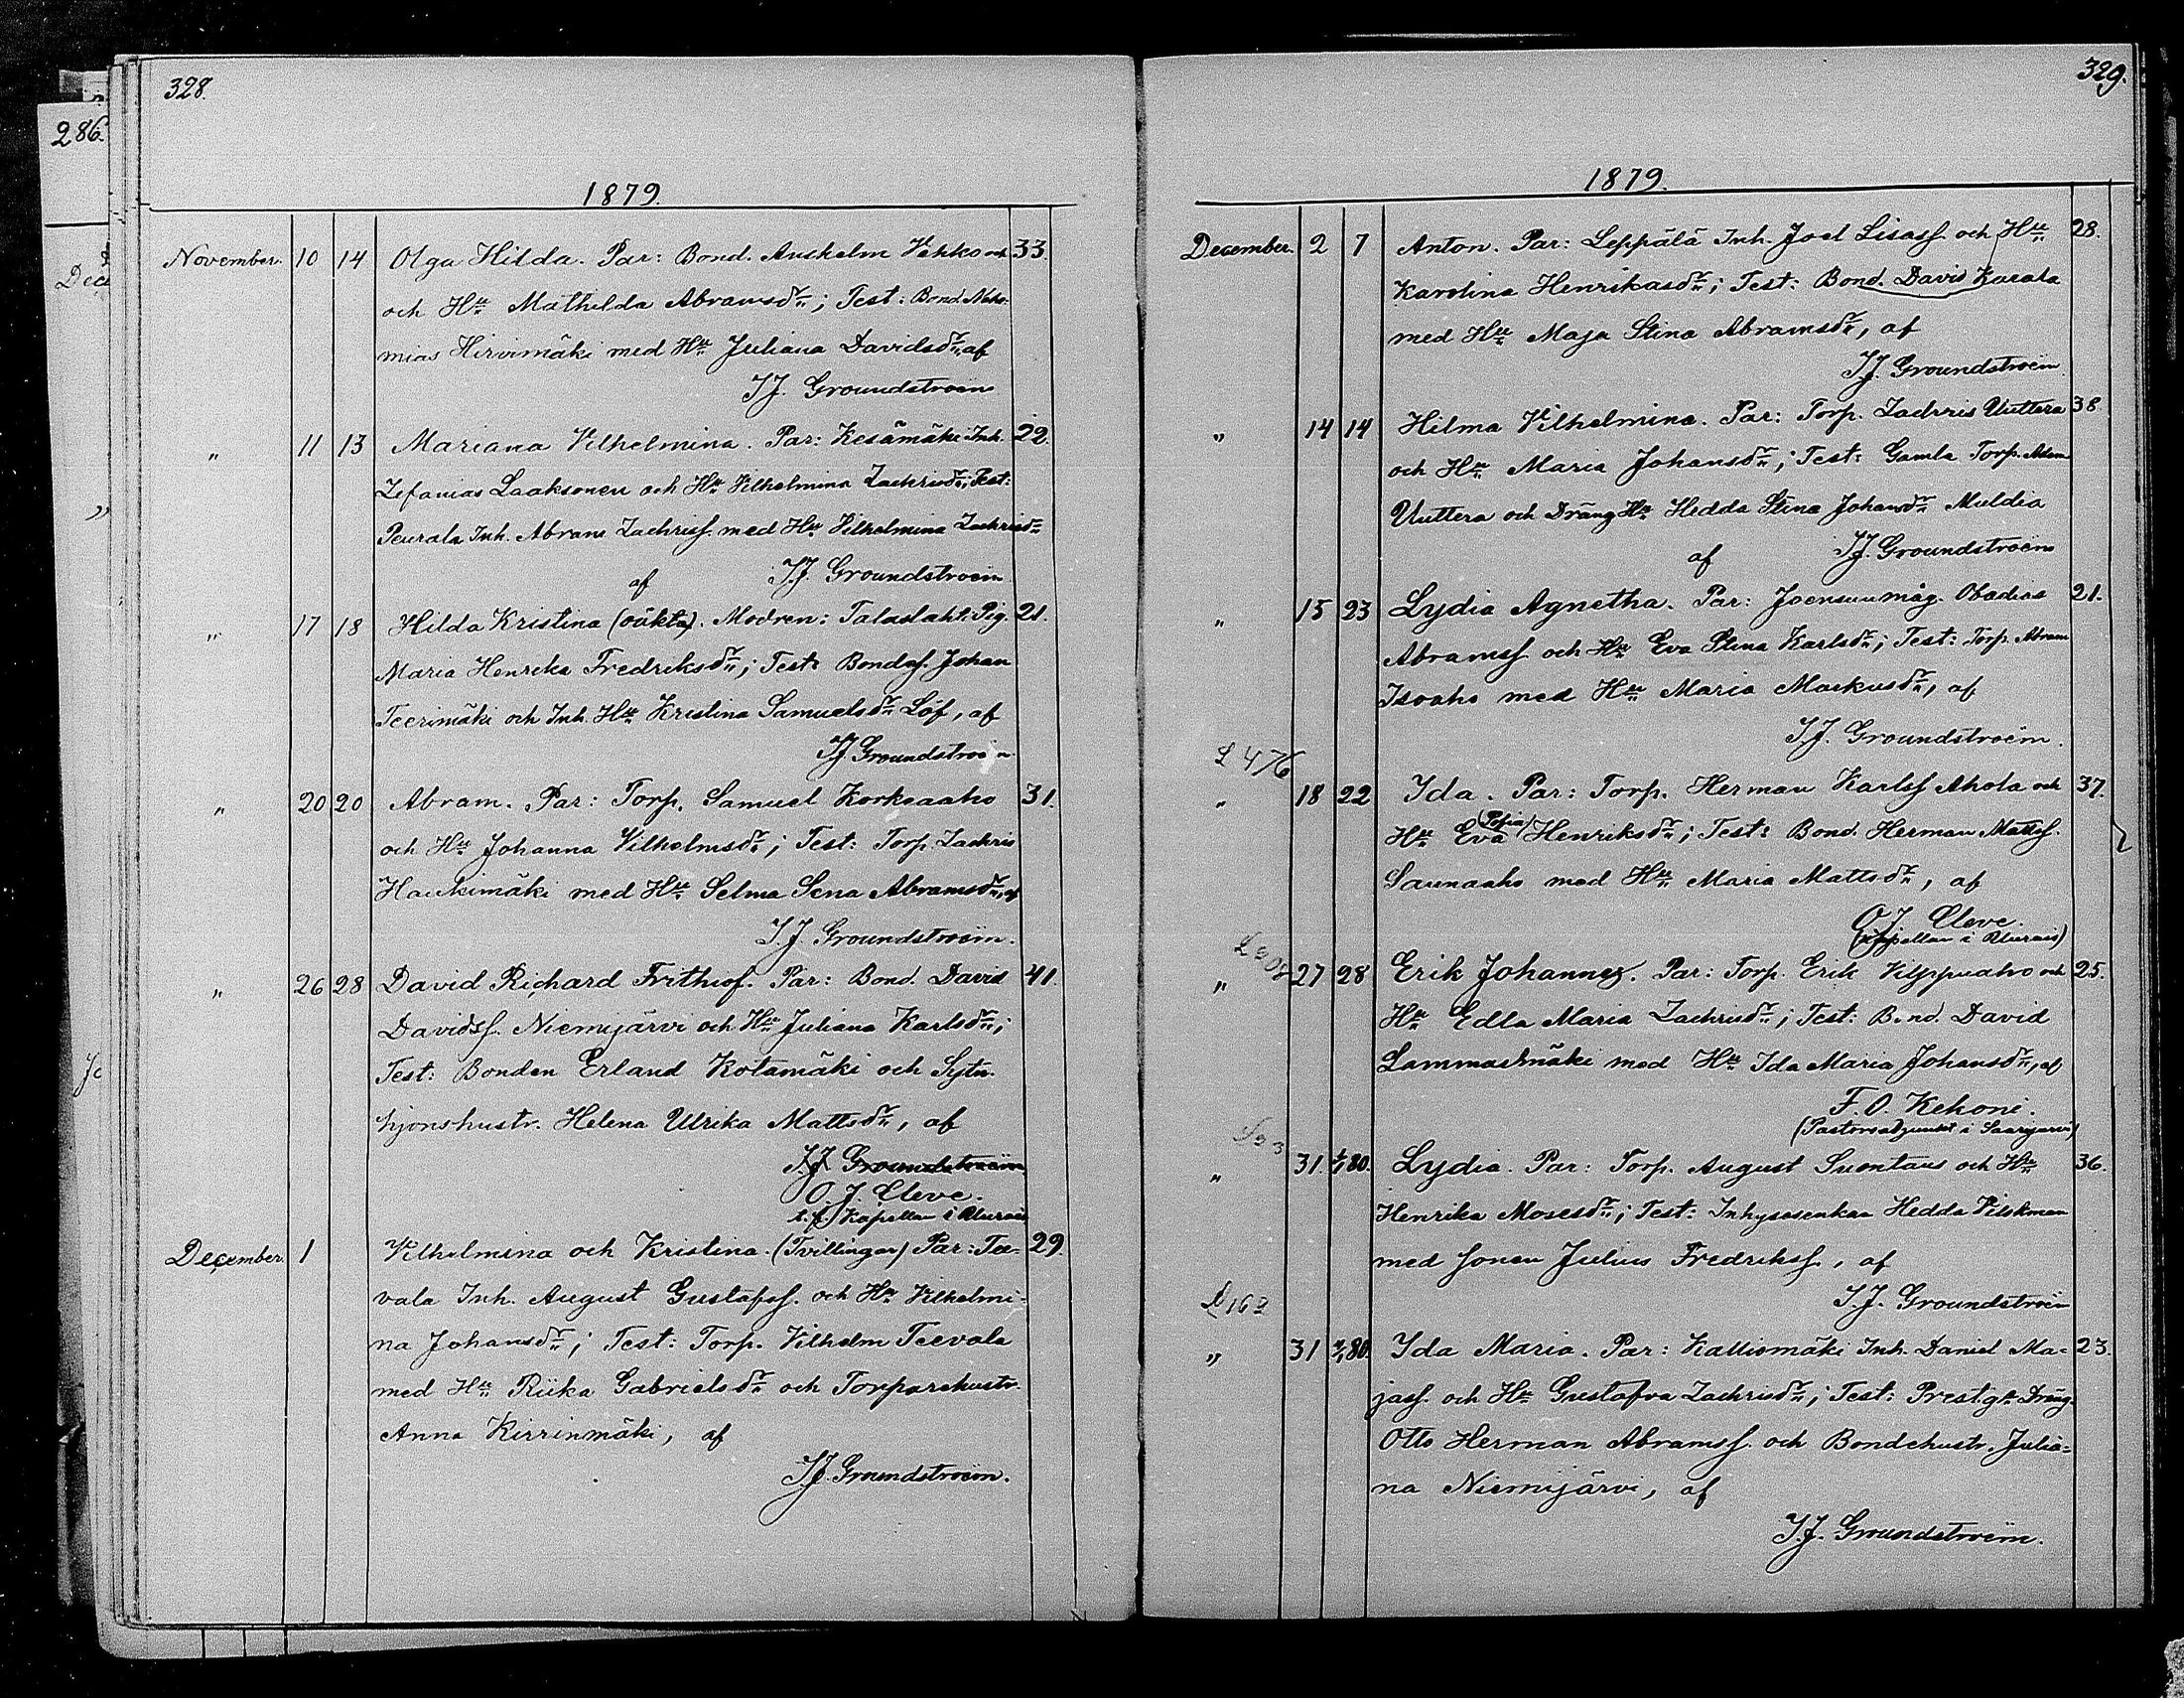 328.
286.
1879.
November. 10 14 Olga Hilda. Par: Bond. Anshelm Vehko och 33.
och Hu Mathilda Abramsdr; Test: Bond. Nehe-
mias Hirvimäki med Hu Juliana Davidsdr, af
I.J. Groundstroëm
" 11 13 Mariana Vilhelmina. Par: Kesämäki Inh. 22.
Zefanias Laaksonen och Hu Vilhelmina Zachrisdr; Test:
Peurala Inh. Abram Zachriss. med Hu Vilhelmina Zachrisdr
af I.J. Groundstroëm
" 17 18 Hilda Kristina (oäkta). Modren: Talaslahti Pig. 21.
Maria Henrika Fredriksdr; Test: Bondes. Johan
Teerimäki och Inh. Hu Kristina Samuelsdr Löf, af
I.J. Groundstroëm
" 20 20 Abram. Par: Torp. Samuel Korkeaaho 31.
och Hu Johanna Vilhelmsdr; Test: Torp. Zachris
Haukimäki med Hu Selma Sena Abramsdr, af
I.J. Groundstroëm.
" 26 28 David Richard Frithiof. Par: Bond. David 41.
Davidss. Niemijärvi och Hu Juliana Karlsdr;
Test: Bonden Erland Kotamäki och Sytn.
hjonshustr. Helena Ulrika Mattsdr, af
I.J. Groundstroëm
O. J. Cleve.
t.f. Kapellan i Alurais
December. 1 Vilhelmina och Kristina. (Tvillingar) Par: Tee- 29.
vala Inh. August Gustafss. och Hu Vilhelmi-
na Johansdr; Test: Torp. Vilhelm Teevala
med Hu Riika Gabrielsdr och Torparehustr.
Anna Kirrinmäki, af
I.J. Groundstroëm.
329.
1879.
December. 2 7 Anton. Par: Leppälä Inh. Joel Lisass. och Hu 28.
Karolina Henrikasdr; Test: Bond. David Karata
med Hu Maja Stina Abramsdr, af
I.J. Groundstroëm
" 14 14 Hilma Vilhelmina. Par: Torp. Zachris Uuttera 38.
och Hu Maria Johansdr; Test: Gamla Torp. Adam
Uuttera och Dräng Hu Hedda Stina Johansdr Muldia
af I.J. Groundstroëm
" 15 23 Lydia Agnetha. Par: Joensuu måg. Obadias 21.
Abramss och Hu Eva Stina Karlsdr; Test: Torp. Abram
Isoaho med Hu Maria Markusdr, af
I.J. Groundstroëm.
L 476
" 18 22 Ida. Par: Torp. Herman Karlss Ahola och 37.
(Sofia)
Hu Eva Henriksdr; Test: Bond. Herman Mattss.
Saunaaho med Hu Maria Mattsdr, af
O J Cleve.
(Kapellan i Alurais)
" 27 28 Erik Johannes. Par: Torp. Erik Vilppuaho och 25.
Hu Edla Maria Zachrisdr; Test: Bond. David
Lammasmäki med Hu Ida Maria Johansdr, af
F. O. Kekoni.
(Pastorsadjunkt i Saarijärvi)
" 31. 1/1 80. Lydia. Par: Torp. August Suontaus och Hu 36.
Henrika Mosesdr; Test: Inhysesenkan Hedda Vilskman
med sonen Julius Fredrikss., af
I.J. Groundstroëm
L 163
" 31 4/1 80. Ida Maria. Par: Kalliomäki Inh. Daniel Ma- 23.
jass. och Hu Gustafva Zachrisdr; Test: Prestgds Dräng.
Otto Herman Abramss. och Bondehustr. Julia-
na Niemijärvi, af
I.J. Groundstroëm.